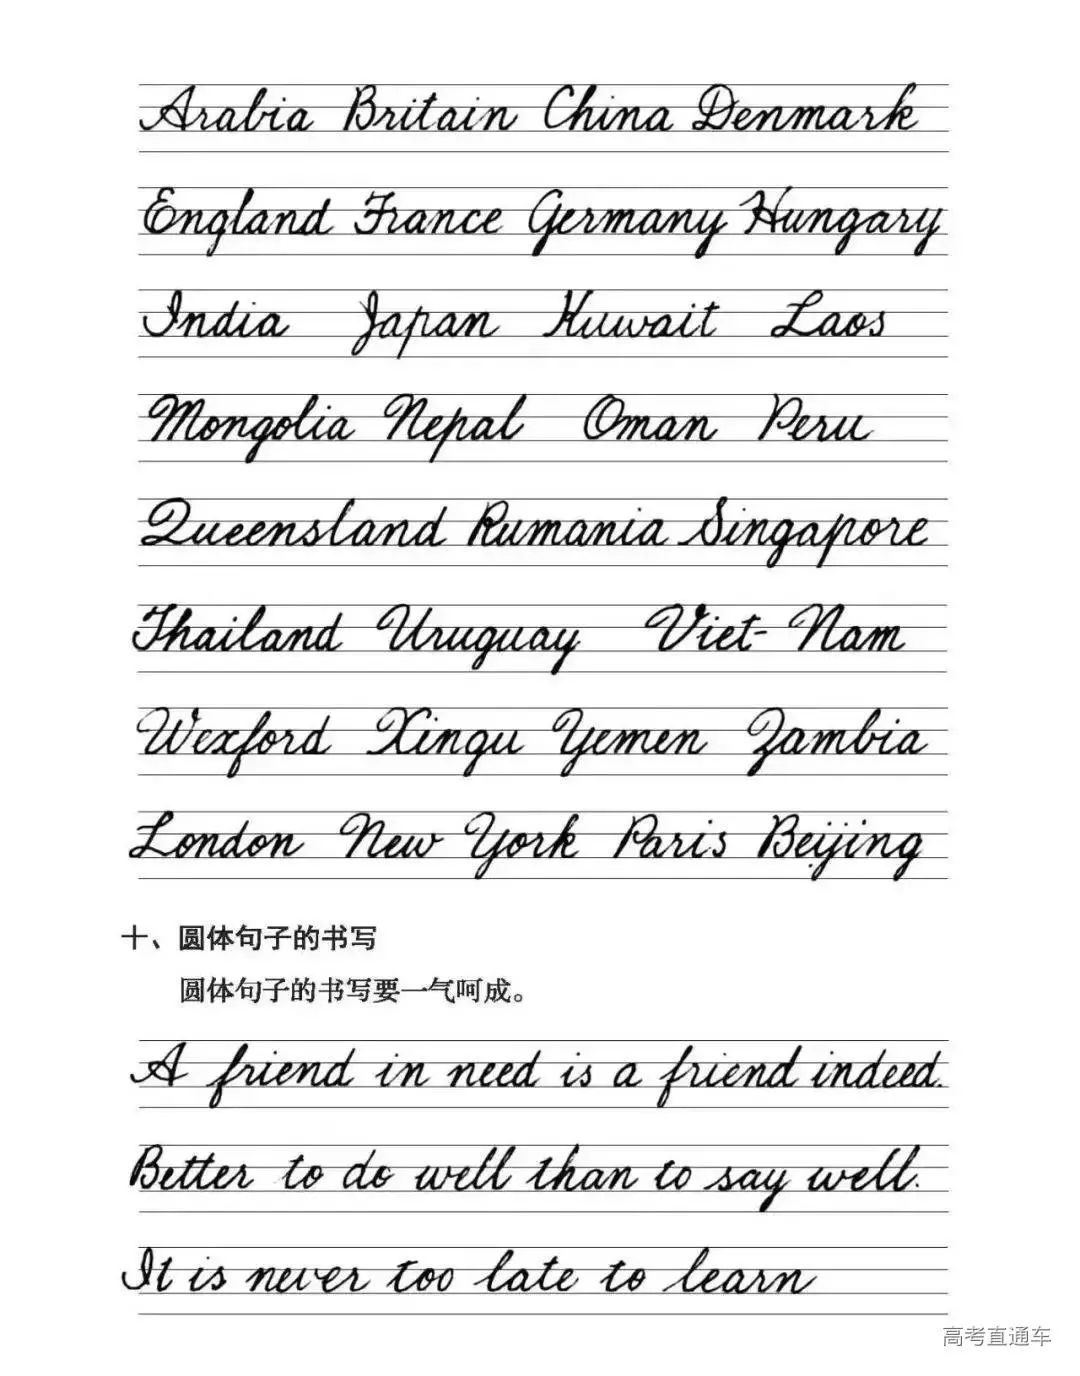 Arabia Britain China Denmark
England France Germany Hungary
India Japan Kuwait Laos
Mongolia Nepal Oman Peru
Queensland Rumania Singapore
Thailand Uruguay Viet-Nam
Wexford Xingu Yemen Zambia
London New York Paris Beijing
十、圆体句子的书写
圆体句子的书写要一气呵成。
A friend in need is a friend indeed.
Better to do well than to say well.
It is never too late to learn
高考直通车